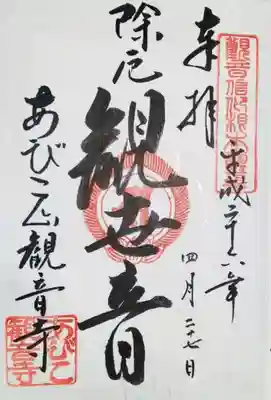 奉拝
平成二十六年
四月二十七日
除厄
観世音
あびこ山観音寺
あびこ
観音寺